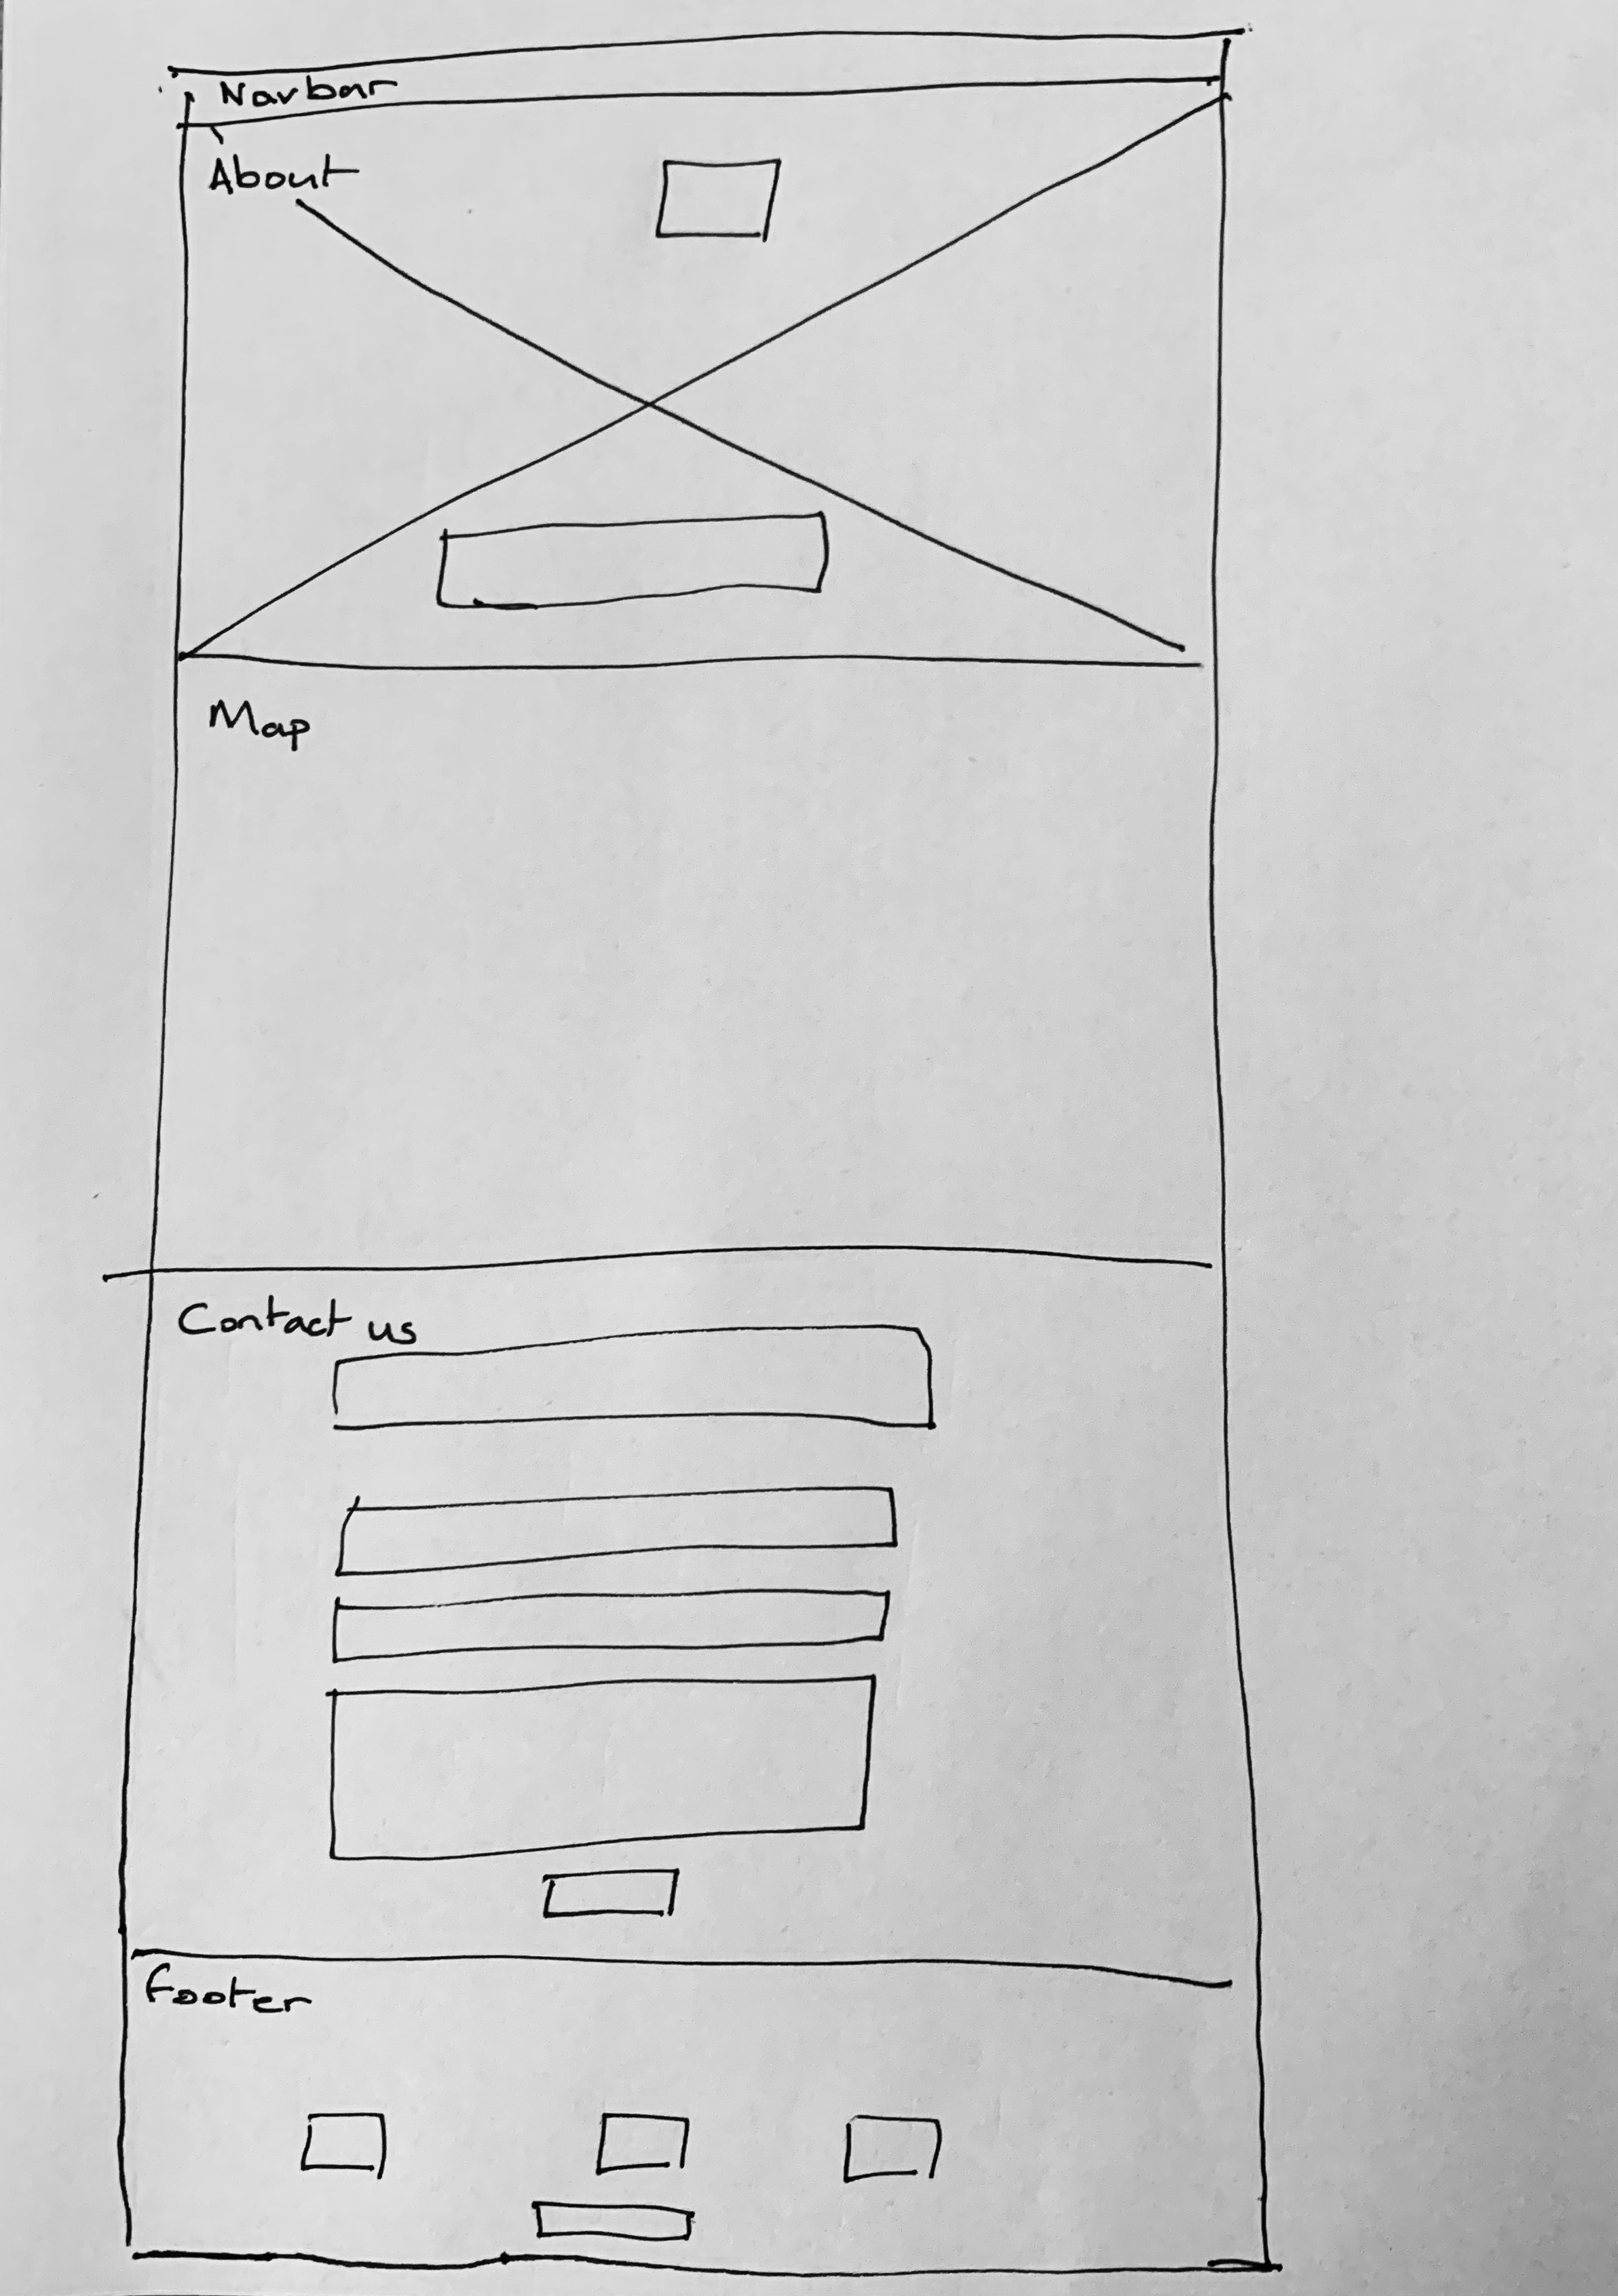 Navbar
About
Map
Contact us
footer